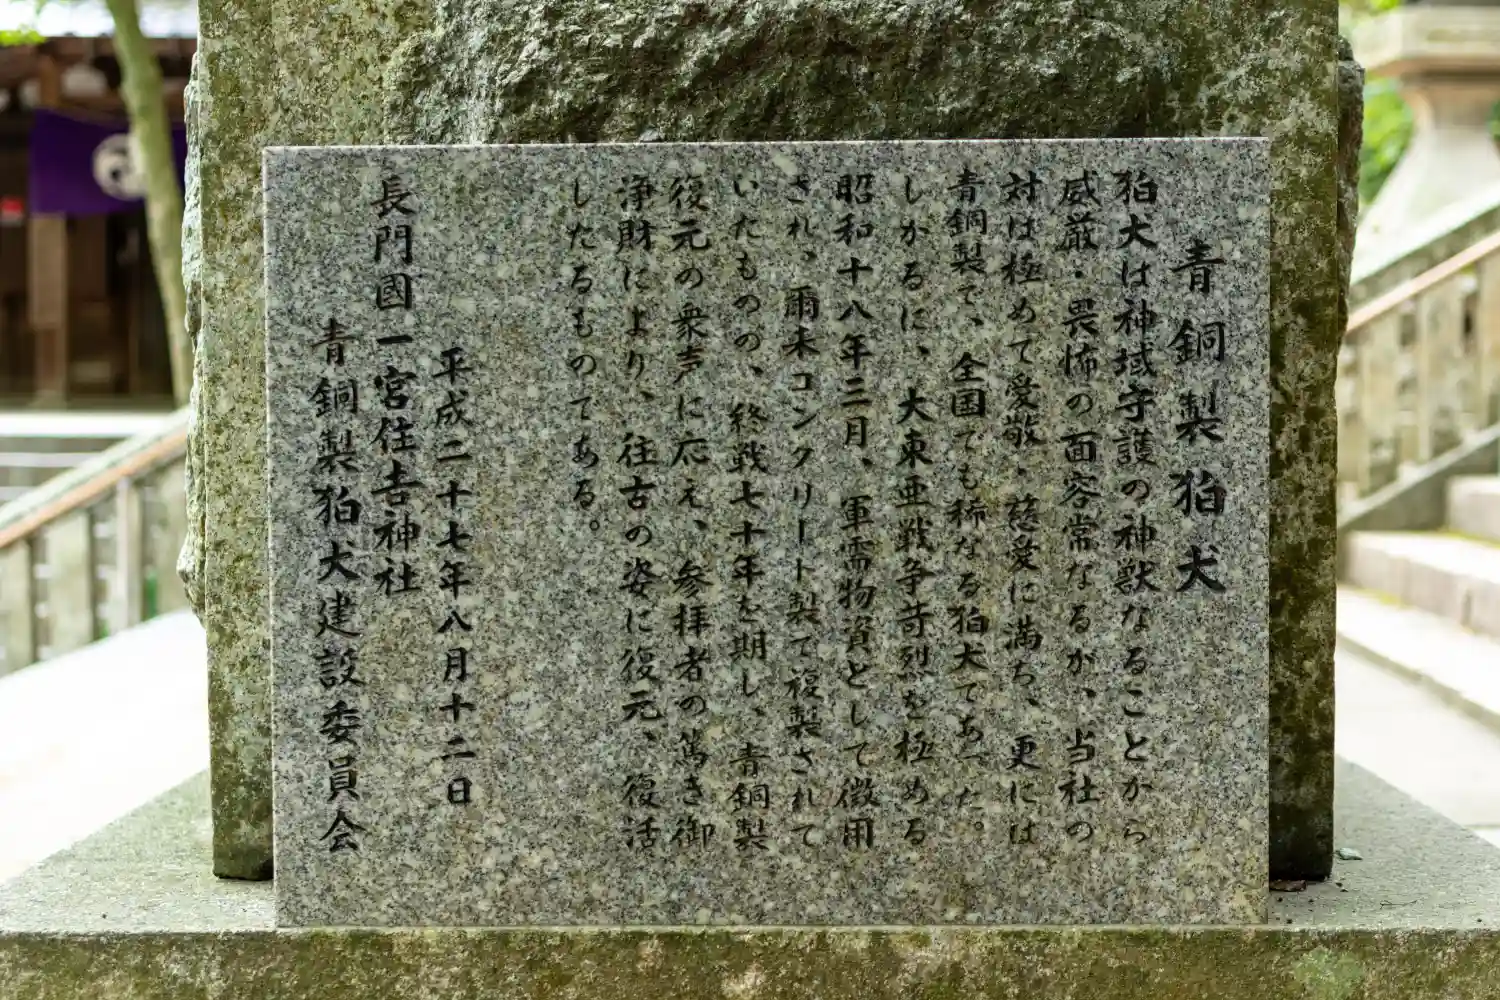 青銅製狛犬
狛犬は神域守護の神獣なることから
威厳・畏怖の面容常なるが、当社の
対は極めて受敬・慈愛に満ち、更には
青銅製で、全国でも稀なる狛犬であった。
しかるに、大東亜戦争苛烈を極める
昭和十八年三月、軍需物資として徴用
され、爾来コンクリート製で複製されて
いたものの、終戦七十年を期し、青銅製
復元の衆声に応え、参拝者の篤き御
浄財により、往古の姿に復元、復活
したるものである。
平成二十七年八月十二日
長門國一宮住吉神社
青銅製狛犬建設委員会